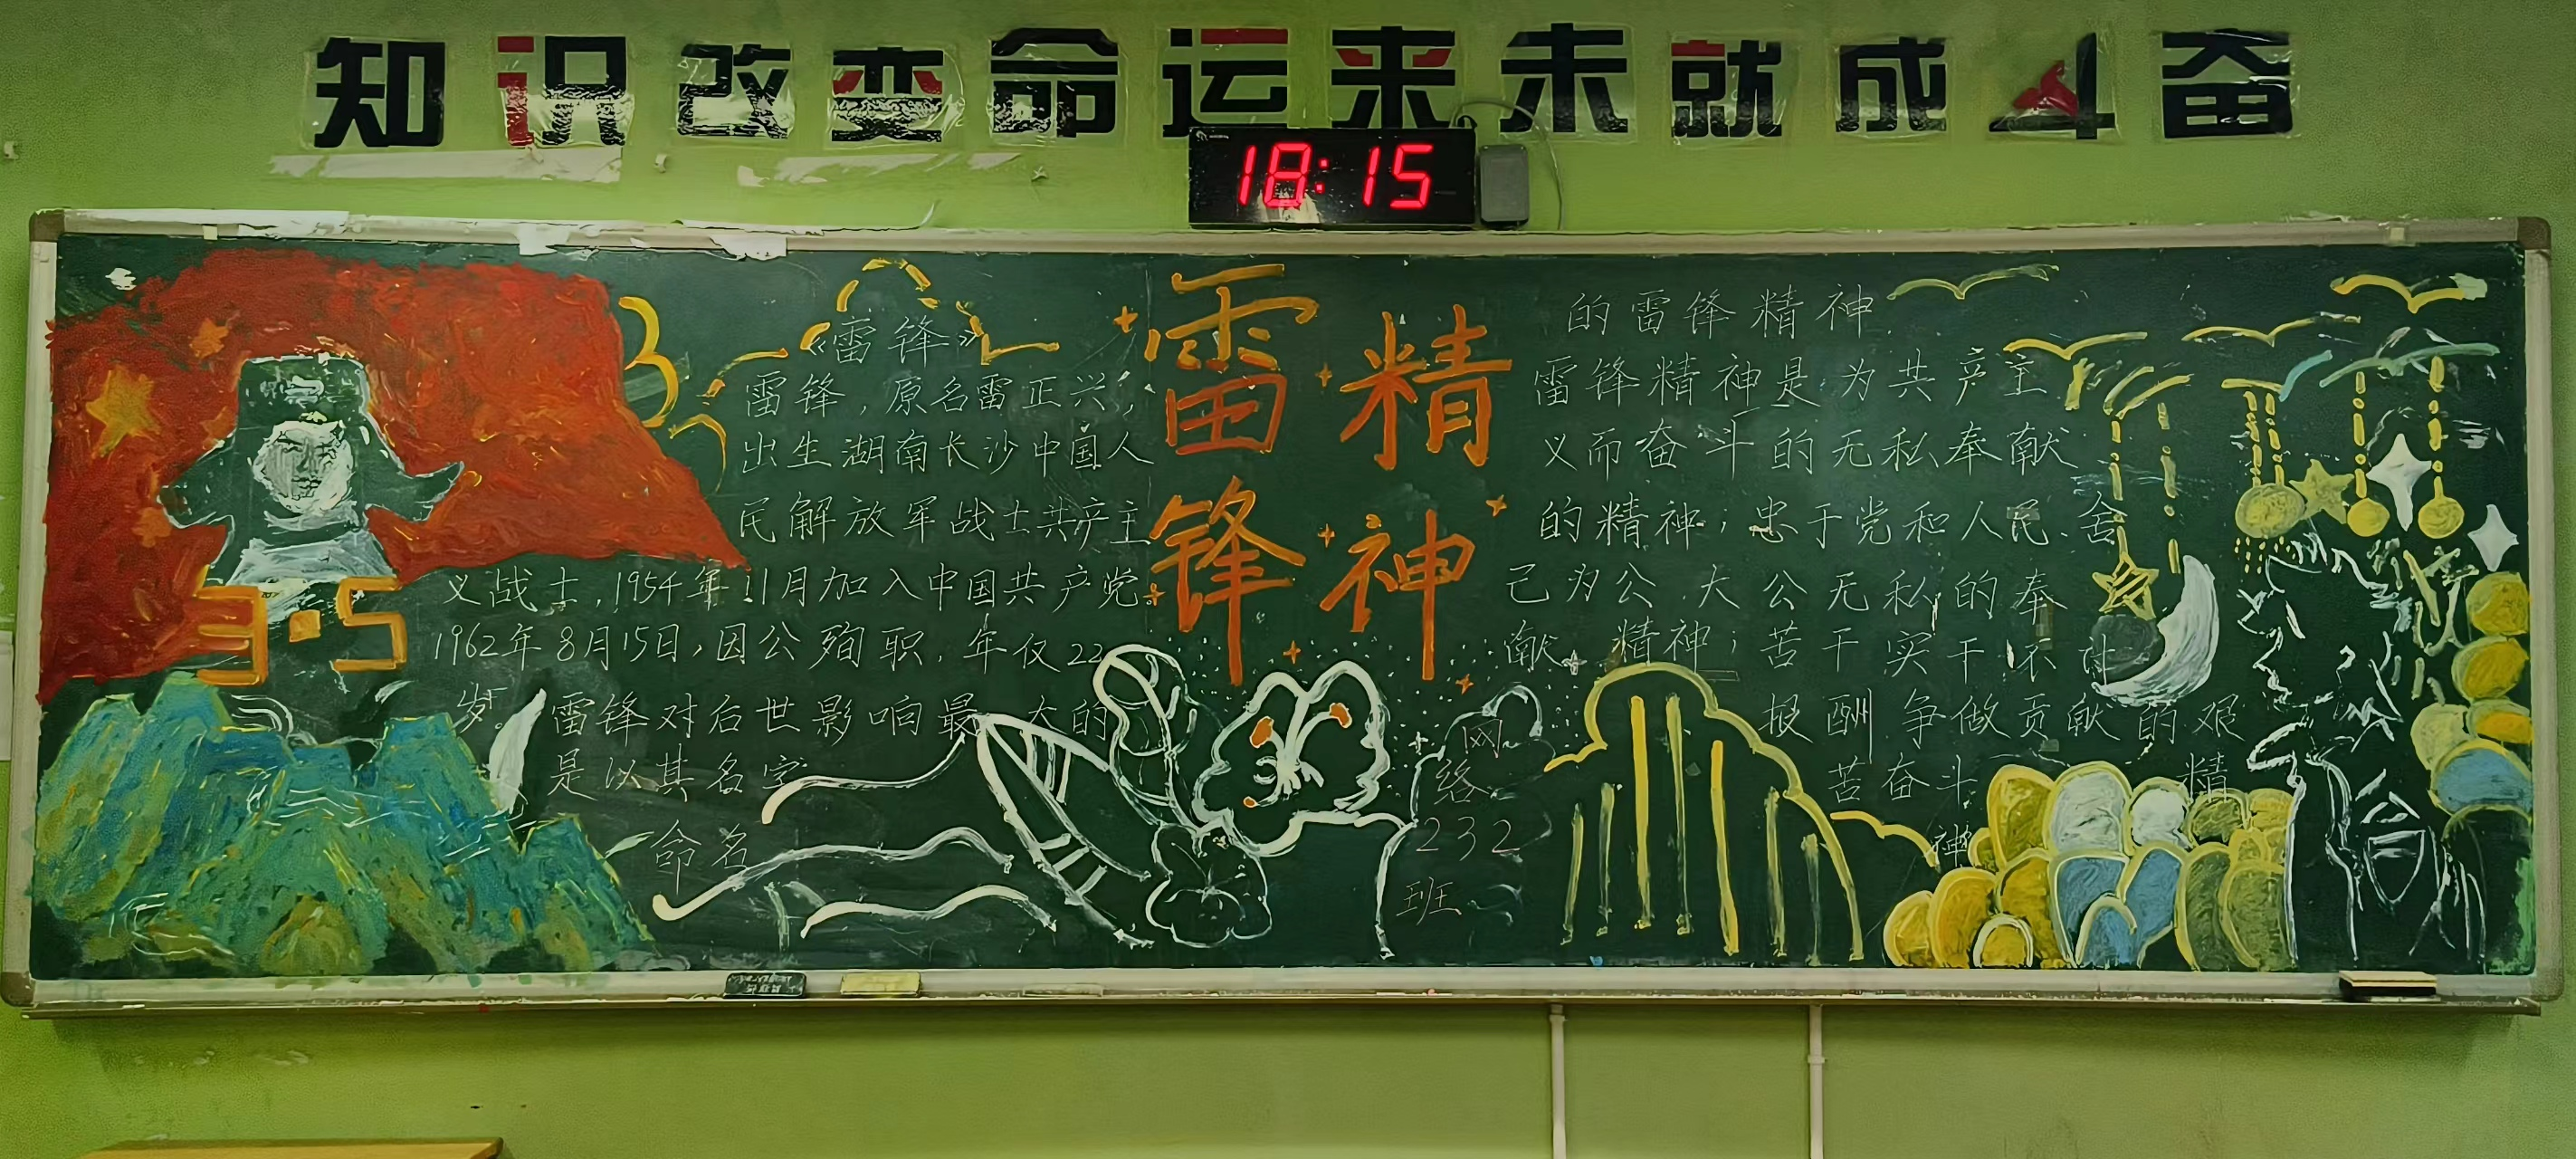 知识改变命运来未就成斗奋
18:15
《雷锋》
雷锋，原名雷正兴，
出生湖南长沙中国人
民解放军战士共产主
义战士，1954年11月加入中国共产党。
1962年8月15日，因公殉职，年仅22
岁。雷锋对后世影响最大的
是以其名字
命名
3·5
雷锋
精神
的雷锋精神
雷锋精神是为共产主
义而奋斗的无私奉献
的精神；忠于党和人民、舍
己为公、大公无私的奉
献 精神；苦干实干不计
报酬争做贡献的艰
苦奋斗 精
神
网
络
232
班